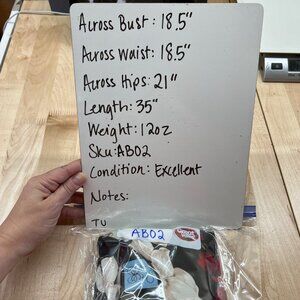 Across Bust: 18.5"
Across Waist: 18.5"
Across Hips: 21"
Length: 35"
Weight: 12oz
Sku: AB02
Condition: Excellent
Notes:
TU
AB02